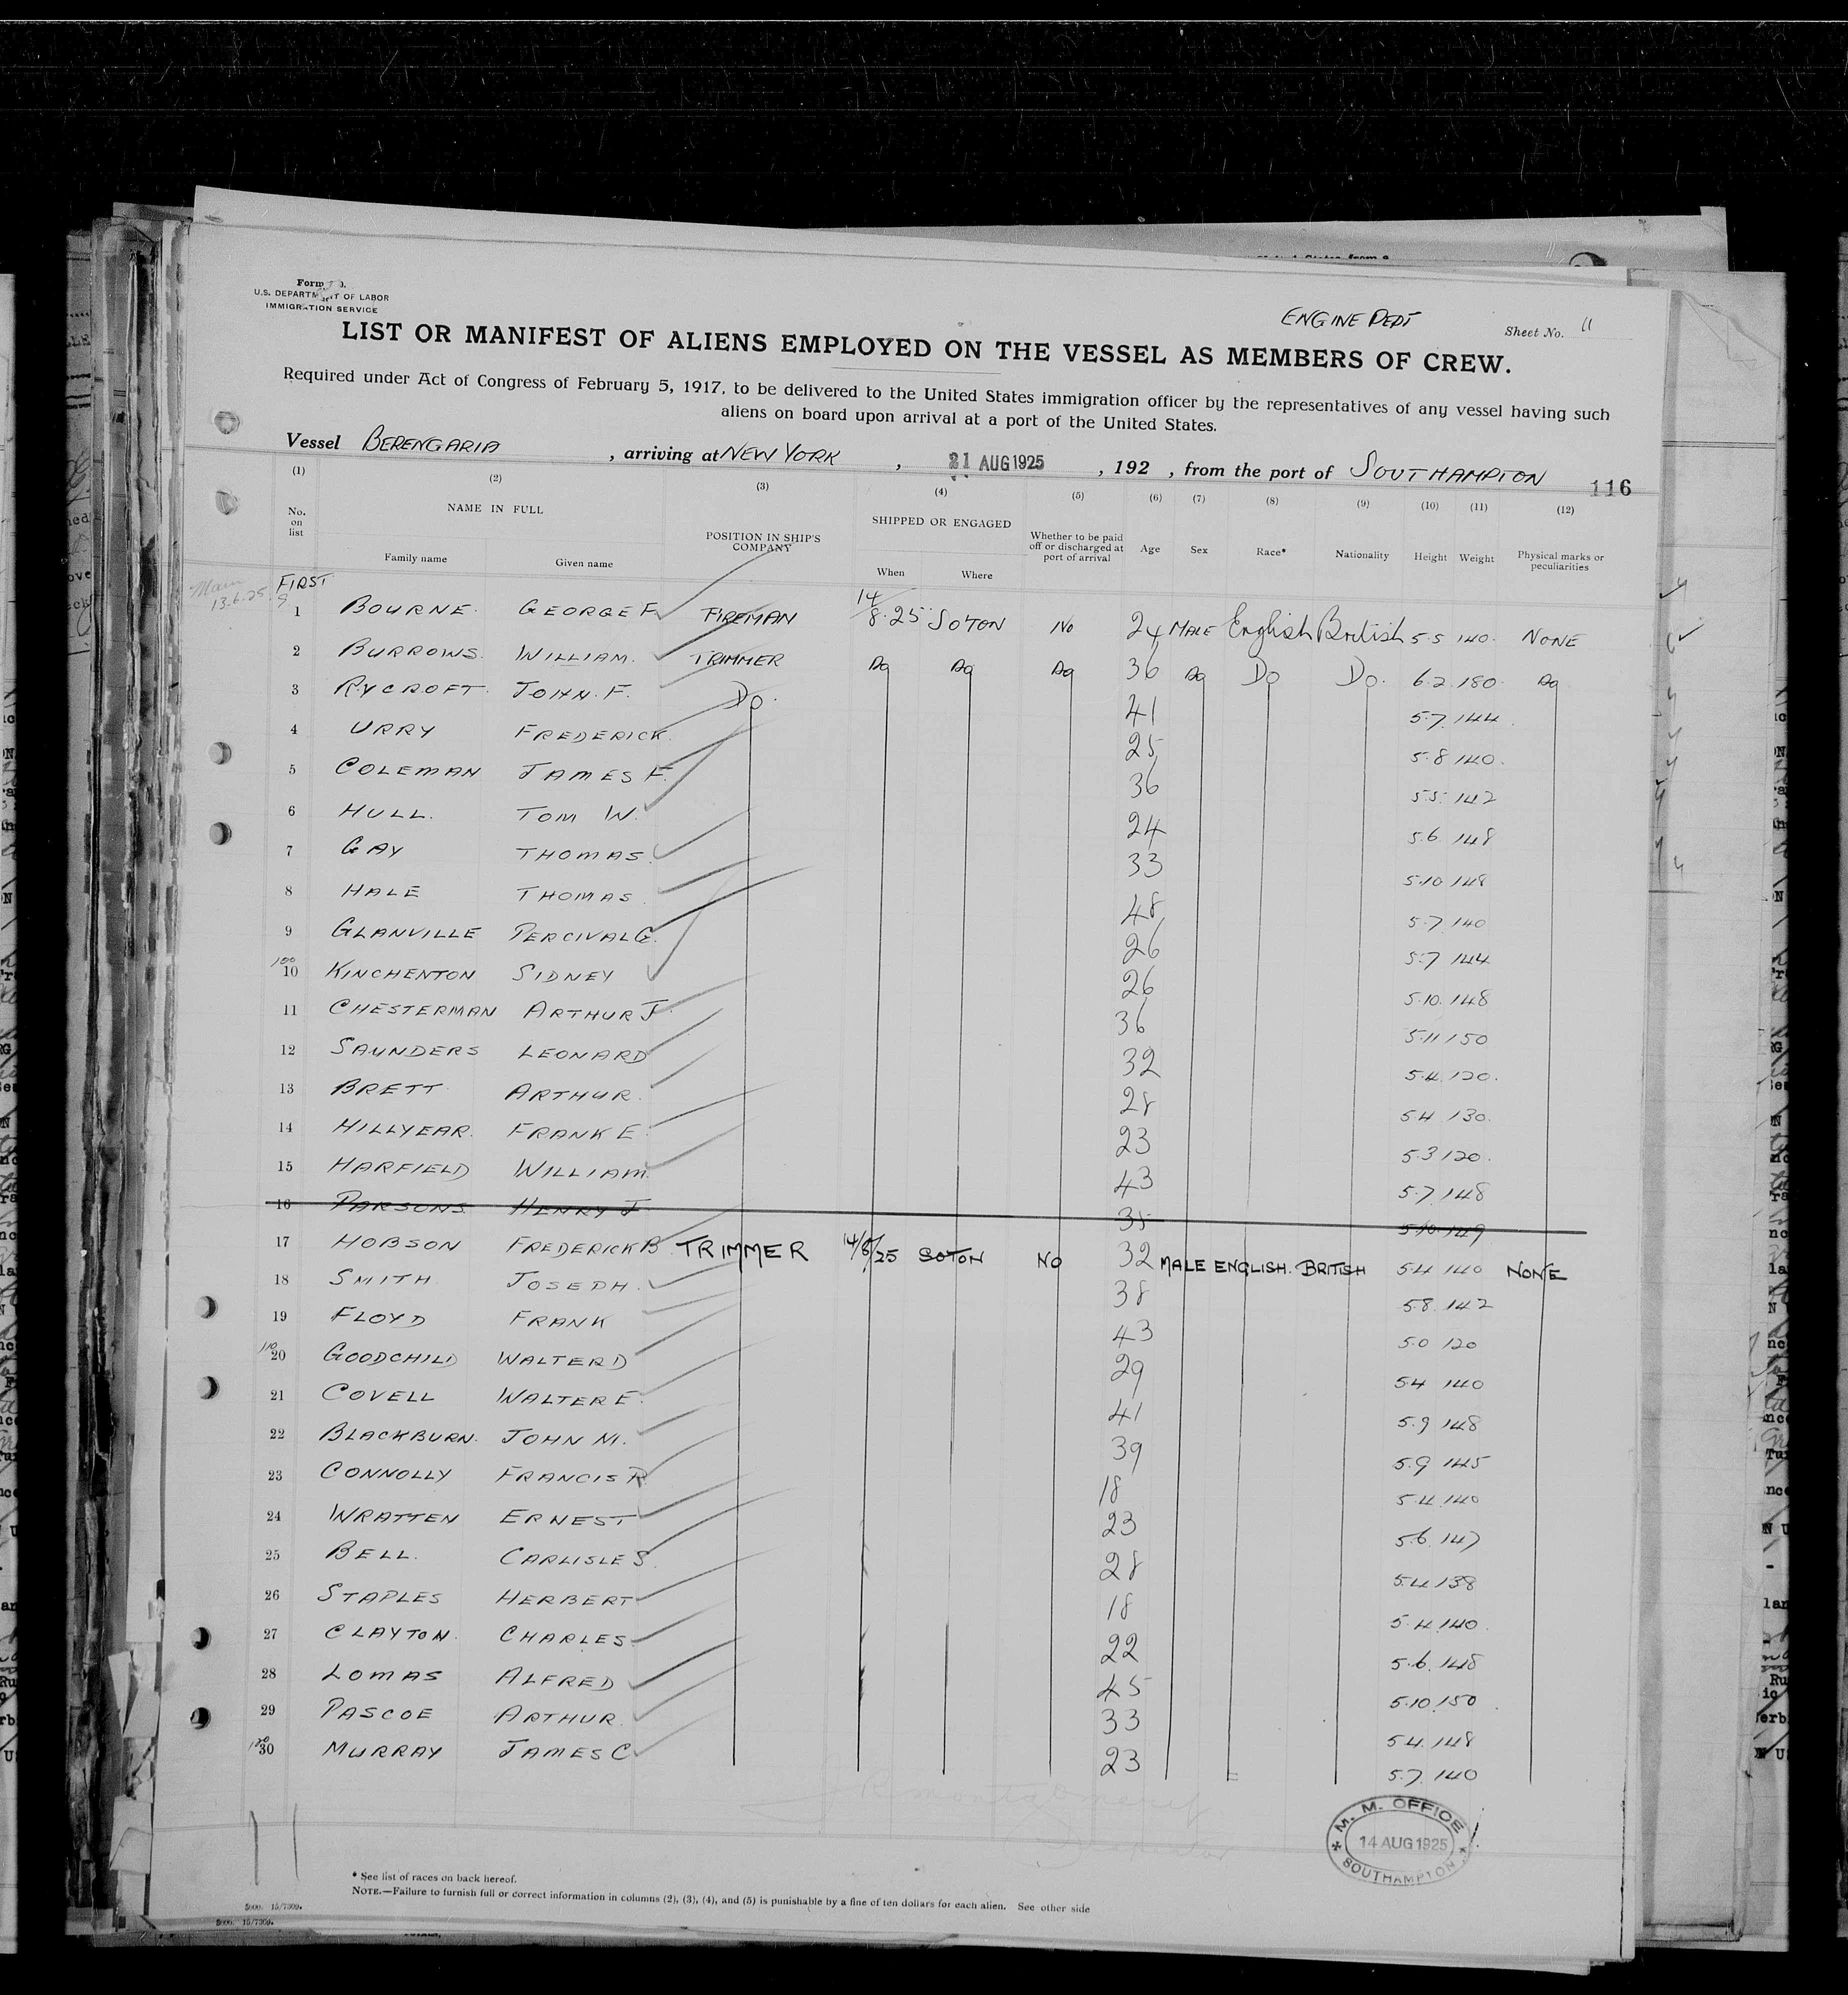 Form
U.S. DEPARTMENT OF LABOR
IMMIGRATION SERVICE
ENGINE DEPT
Sheet No. 11
LIST OR MANIFEST OF ALIENS EMPLOYED ON THE VESSEL AS MEMBERS OF CREW.
Required under Act of Congress of February 5, 1917, to be delivered to the United States immigration officer by the representatives of any vessel having such
aliens on board upon arrival at a port of the United States.
Vessel BERENGARIA , arriving at NEW YORK , 21 AUG 1925 , 192 , from the port of SOUTHAMPTON
116
(1) (2) (3) (4) (5) (6) (7) (8) (9) (10) (11) (12)
No. on list NAME IN FULL POSITION IN SHIP'S COMPANY SHIPPED OR ENGAGED Whether to be paid off or discharged at port of arrival Age Sex Race* Nationality Height Weight Physical marks or peculiarities
Family name Given name When Where
13.6.25
FIRST
1 BOURNE GEORGE F FIREMAN 14/8.25 SOTON NO 24 MALE English British 5.5 140 NONE
2 BURROWS WILLIAM. TRIMMER Do Do Do 36 Do Do Do. 6.2 180 Do
3 RYCROFT JOHN. F. Do. 41 5.7 144
4 URRY FREDERICK. 25 5.8 140.
5 COLEMAN JAMES F. 36 5.5. 142
6 HULL. TOM W. 24 5.6 148
7 GAY THOMAS. 33 5.10 148
8 HALE THOMAS. 48 5.7 140
9 GLANVILLE PERCIVAL G. 26 5.7 144
100
10 KINCHENTON SIDNEY 26 5.10. 148
11 CHESTERMAN ARTHUR J. 36 5.11 150
12 SAUNDERS LEONARD 32 5.4. 120.
13 BRETT ARTHUR. 28 5.4 130.
14 HILLYEAR. FRANK E. 23 5.3 120.
15 HARFIELD WILLIAM. 43 5.7 148
16 PARSONS. HENRY J 35 5.10. 149
17 HOBSON FREDERICK B TRIMMER 14/8/25 SOTON NO 32 MALE ENGLISH. BRITISH 5.4 140 NONE
18 SMITH JOSEPH. 38 5.8. 142
19 FLOYD FRANK 43 5.0 120
110
20 GOODCHILD WALTER D 29 5.4 140
21 COVELL WALTER E. 41 5.9 148
22 BLACKBURN. JOHN M. 39 5.9 145
23 CONNOLLY FRANCIS R. 18 5.4 140
24 WRATTEN ERNEST 23 5.6. 147
25 BELL. CARLISLE S. 28 5.4 138
26 STAPLES HERBERT 18 5.4 140.
27 CLAYTON. CHARLES. 22 5.6. 148
28 LOMAS ALFRED 45 5.10. 150
29 PASCOE ARTHUR. 33 5.4. 148
120
30 MURRAY JAMES C 23 5.7. 140
M. M. OFFICE
14 AUG 1925
SOUTHAMPTON
* See list of races on back hereof.
NOTE.—Failure to furnish full or correct information in columns (2), (3), (4), and (5) is punishable by a fine of ten dollars for each alien. See other side
5000. 15/7309.
5000. 15/7309.